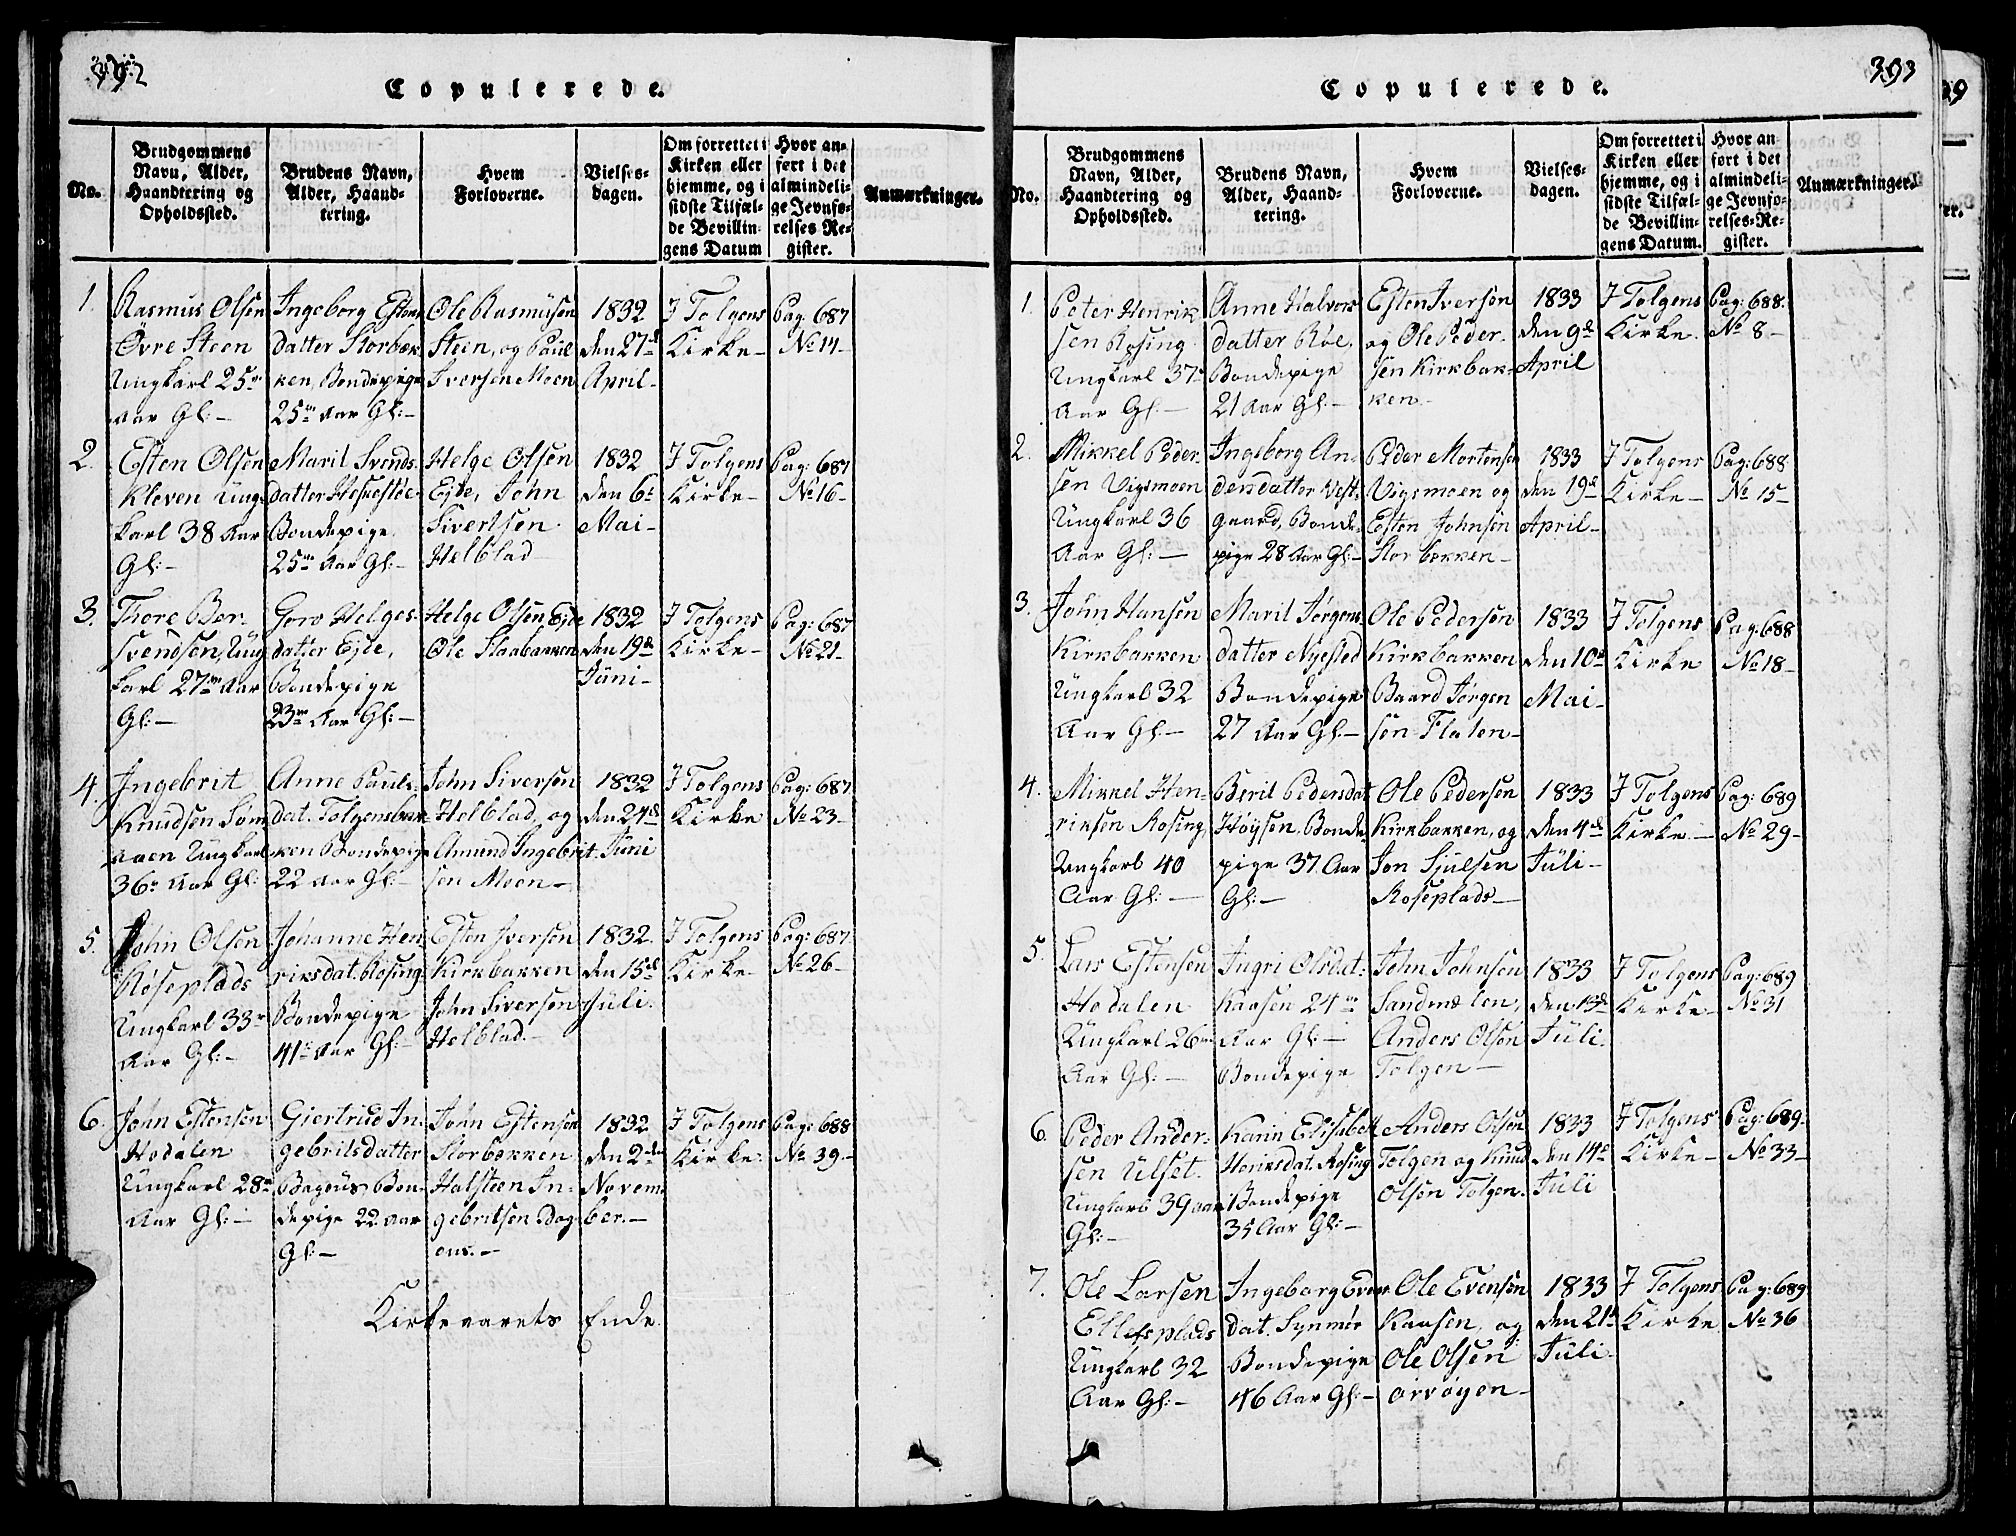 392
Copulerede.
No.
Brudgommens
Navn, Alder,
Haandtering og
Opholdssted.
Brudens Navn,
Alder, Haand-
tering.
Hvem
Forloverne.
Vielses-
dagen.
Om forrettet i
Kirken eller
hjemme, og i
sidste Tilfæl-
de Bevillin-
gens Datum
Hvor an-
ført i det
almindeli-
ge Jevnfø-
relses Re-
gister.
Anmærkninger.
1.
Rasmus Olsen
Övre Steen
Ungkarl 25
Aar Gl:-
Ingeborg Estens
datter Storbæk
ken, Bondepige
25 Aar Gl:-
Ole Rasmusen
Steen, og Paul
Iversen Moen
1832
den 27de
April-
I Tolgens
Kirke-
Pag. 687
No 14-
2.
Esten Olsen
Kleven Ung-
karl 38 Aar
Gl:-
Marit Svends
datter
Bondepige
25 Aar Gl:-
Helge Olsen
Eide, John
Sivertsen
Helblad
1832
den 6
Mai-
I Tolgens
Kirke-
Pag: 687
No 16-
3.
Thore Ber-
svendsen, Ung
karl 27 Aar
Gl:-
Goro Helges
datter Eide,
Bondepige
23 Aar Gl:-
Helge Olsen Eide
Ole
1832
den 19de
Juni-
I Tolgens
Kirke-
Pag: 687
No 21-
4.
Ingebrit
Knudsen Søm
aaen Ungkarl
36 Aar Gl:
Anne Pauls
dat. Tolgensbak-
ken Bondepige
22 Aar Gl:-
John Siversen
Helblad, og
Amund Ingebrit
sen Moen-
1832
den 24de
Juni
I Tolgens
Kirke
Pag: 687
No 23-
5.
John Olsen
Röseplads
Ungkarl 33
Aar Gl:-
Johanne Hen
riksdat. Rosing
Bondepige
41 Aar Gl:-
Esten Iversen
Kirkbakken
John Siversen
Helblad.-
1832.
den 15de
Juli.
I Tolgens
Kirke-
Pag: 687
No 26-
6.
John Estensen
Hodalen
Ungkarl 28
Aar Gl:-
Giertrud In-
gebritsdatter
Bageus, Bon-
depige 22 Aar
Gl:-
John Estensen
Storbekken
Halsteen In-
gebritsen Bag-
ens.-
1832
den 2den
Novem
ber.-
I Tolgens
Kirke-
Pag: 688
No 39.-
Kirkeaarets Ende.
393
Copulerede.
No.
Brudgommens
Navn, Alder,
Haandtering og
Opholdssted.
Brudens Navn,
Alder, Haand-
tering.
Hvem
Forloverne.
Vielses-
dagen.
Om forrettet i
Kirken eller
hjemme, og i
sidste Tilfæl-
de Bevillin-
gens Datum.
Hvor an-
ført i det
almindeli-
ge Jevnfø-
relses-Re-
gister.
Anmærkninger.
1.
Peter Henrik
sen Rosing
Ungkarl 37
Aar Gl:-
Anne Halvors
datter Röe,
Bondepige
21 Aar Gl:-
Esten Iversen
og Ole Peder-
sen Kirkbak-
ken-
1833
den 9de
April
I Tolgens
Kirke.
Pag: 688.
No 8-
2.
Mikkel Peder-
sen Vigsmoen
Ungkarl 36
Aar Gl:-
Ingeborg An-
dersdatter Vest-
gaard, Bonde-
pige 28 Aar Gl:-
Peder Mortensen
Vigsmoen og
Esten Johnsen
Storbekken-
1833
den 19de
April-
I Tolgens
Kirke-
Pag: 688
No 15-
3.
John Hansen
Kirkbakken
Ungkarl 32
Aar Gl:-
Marit Jørgens
datter Nyested
Bondepige
27 Aar Gl:-
Ole Pedersen
Kirkbakken
Baard Jørgen
sen Flaten-
1833
den 10de
Mai-
I Tolgens
Kirke
Pag: 688
No 18-
4.
Mikkel Hen-
riksen Rosing
Ungkarl 40
Aar Gl:-
Berit Pedersdat.
Höysen, Bonde
pige 37 Aar
Gl:-
Ole Pedersen
Kirkbakken, og
Jon Sjulsen
Roseplads-
1833
den 4de
Juli-
I Tolgens
Kirke-
Pag: 689
No 29-
5.
Lars Estensen
Hodalen
Ungkarl 26
Aar Gl:-
Ingri Olsdat:
Kaasen 24
Aar Gl:-
Bondepige
John Johnsen
Sandmælen,
Anders Olsen
Tolgen-
1833
den 13de
Juli.
I Tolgens
Kirke-
Pag: 689
No 31
6.
Peder Ander-
sen Ulset.
Ungkarl 39 aar
Gl:-
Karin Elisabet
Henriksdat. Rosing
Bondepige
35 Aar Gl:-
Anders Olsen
Tolgen og Knud
Olsen Tolgen.
1833
den 14de
Juli
I Tolgens
Kirke-
Pag: 689.
No 33-
7.
Ole Larsen
Ellefsplads
Ungkarl 32
Aar Gl:-
Ingeborg Evens
dat. Synmör
Bondepige
46 Aar Gl:-
Ole Evensen
Kaasen, og
Ole Olsen
1833
den 21de
Juli-
I Tolgens
Kirke
Pag: 689
No 36